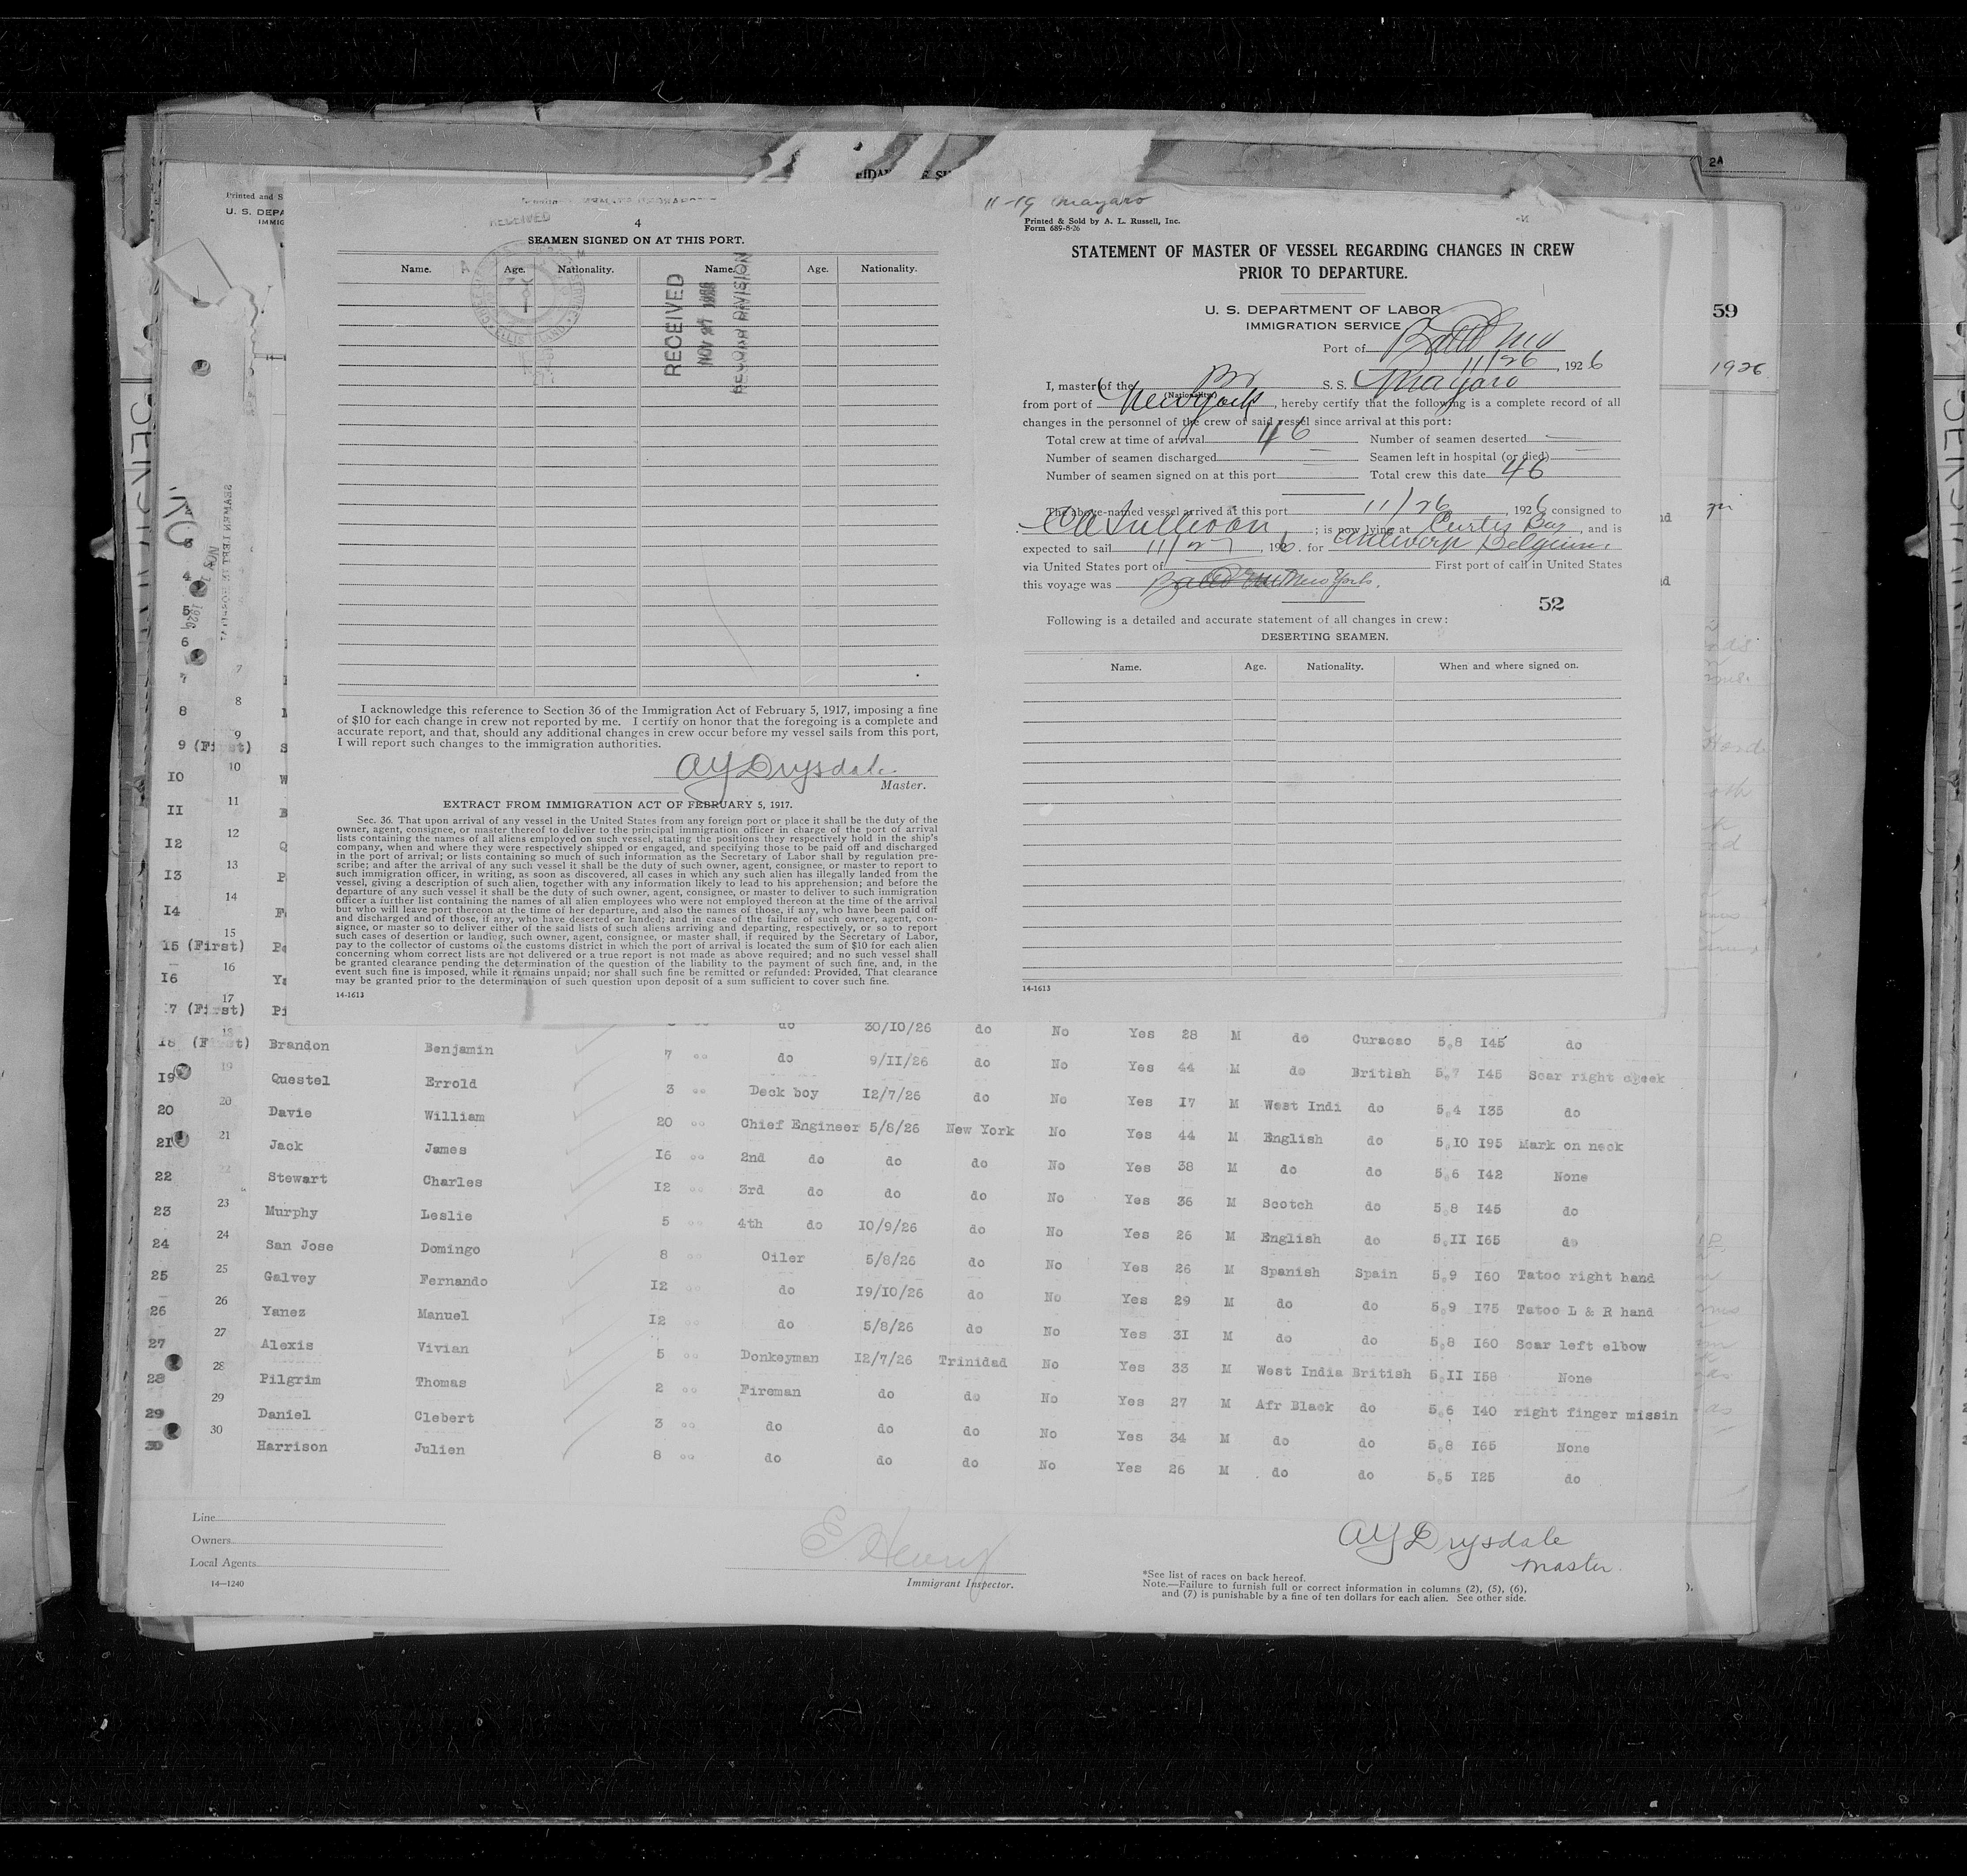 11-19 Mayaro
2A
Printed and S
U. S. DEPA
IMMIG
RECEIVED
4
SEAMEN SIGNED ON AT THIS PORT.
Name. Age. Nationality. Name. Age. Nationality.
RECEIVED
NOV 27
RECORD DIVISION
I acknowledge this reference to Section 36 of the Immigration Act of February 5, 1917, imposing a fine
of $10 for each change in crew not reported by me. I certify on honor that the foregoing is a complete and
accurate report, and that, should any additional changes in crew occur before my vessel sails from this port,
I will report such changes to the immigration authorities.
AY Drysdale
Master.
EXTRACT FROM IMMIGRATION ACT OF FEBRUARY 5, 1917.
Sec. 36. That upon arrival of any vessel in the United States from any foreign port or place it shall be the duty of the
owner, agent, consignee, or master thereof to deliver to the principal immigration officer in charge of the port of arrival
lists containing the names of all aliens employed on such vessel, stating the positions they respectively hold in the ship's
company, when and where they were respectively shipped or engaged, and specifying those to be paid off and discharged
in the port of arrival; or lists containing so much of such information as the Secretary of Labor shall by regulation pre-
scribe; and after the arrival of any such vessel it shall be the duty of such owner, agent, consignee, or master to report to
such immigration officer, in writing, as soon as discovered, all cases in which any such alien has illegally landed from the
vessel, giving a description of such alien, together with any information likely to lead to his apprehension; and before the
departure of any such vessel it shall be the duty of such owner, agent, consignee, or master to deliver to such immigration
officer a further list containing the names of all alien employees who were not employed thereon at the time of the arrival
but who will leave port thereon at the time of her departure, and also the names of those, if any, who have been paid off
and discharged and of those, if any, who have deserted or landed; and in case of the failure of such owner, agent, con-
signee, or master so to deliver either of the said lists of such aliens arriving and departing, respectively, or so to report
such cases of desertion or landing, such owner, agent, consignee, or master shall, if required by the Secretary of Labor,
pay to the collector of customs of the customs district in which the port of arrival is located the sum of $10 for each alien
concerning whom correct lists are not delivered or a true report is not made as above required; and no such vessel shall
be granted clearance pending the determination of the question of the liability to the payment of such fine, and, in the
event such fine is imposed, while it remains unpaid; nor shall such fine be remitted or refunded: Provided, That clearance
may be granted prior to the determination of such question upon deposit of a sum sufficient to cover such fine.
14-1613
Printed & Sold by A. L. Russell, Inc.
Form 689-8-26
STATEMENT OF MASTER OF VESSEL REGARDING CHANGES IN CREW
PRIOR TO DEPARTURE.
U. S. DEPARTMENT OF LABOR
IMMIGRATION SERVICE
Port of Balto Md
11/26, 1926
I, master of the Br S. S. Mayaro
(Nationality)
from port of New York, hereby certify that the following is a complete record of all
changes in the personnel of the crew of said vessel since arrival at this port:
Total crew at time of arrival 46 Number of seamen deserted —
Number of seamen discharged — Seamen left in hospital (or died) —
Number of seamen signed on at this port — Total crew this date 46
The above-named vessel arrived at this port 11/26, 1926 consigned to
CA Sullivan; is now lying at Curtis Bay, and is
expected to sail 11/27, 1926. for Antwerp Belgium.
via United States port of — First port of call in United States
this voyage was New York.
52
Following is a detailed and accurate statement of all changes in crew:
DESERTING SEAMEN.
Name. Age. Nationality. When and where signed on.
14-1613
59
1926
do 30/10/26 do No Yes 28 M do Curacao 5.8 I45 do
18 (First) Brandon Benjamin 7 do 9/II/26 do No Yes 44 M do British 5.7 I45 Scar right cheek
I9 Questel Errold 3 Deck boy I2/7/26 do No Yes I7 M West Indi do 5.4 I35 do
20 Davie William 20 Chief Engineer 5/8/26 New York No Yes 44 M English do 5.I0 I95 Mark on neck
2I Jack James I6 2nd do do do No Yes 38 M do do 5.6 I42 None
22 Stewart Charles I2 3rd do do do No Yes 36 M Scotch do 5.8 I45 do
23 Murphy Leslie 5 4th do I0/9/26 do No Yes 26 M English do 5.II I65 do
24 San Jose Domingo 8 Oiler 5/8/26 do No Yes 26 M Spanish Spain 5.9 I60 Tatoo right hand
25 Galvey Fernando I2 do I9/I0/26 do No Yes 29 M do do 5.9 I75 Tatoo L & R hand
26 Yanez Manuel I2 do 5/8/26 do No Yes 3I M do do 5.8 I60 Scar left elbow
27 Alexis Vivian 5 Donkeyman I2/7/26 Trinidad No Yes 33 M West India British 5.II I58 None
28 Pilgrim Thomas 2 Fireman do do No Yes 27 M Afr Black do 5.6 I40 right finger missin
29 Daniel Clebert 3 do do do No Yes 34 M do do 5.8 I65 None
30 Harrison Julien 8 do do do No Yes 26 M do do 5.5 I25 do
Line
Owners
Local Agents
14—1240
E. Henry
Immigrant Inspector.
AY Drysdale
Master.
*See list of races on back hereof.
Note.—Failure to furnish full or correct information in columns (2), (5), (6),
and (7) is punishable by a fine of ten dollars for each alien. See other side.